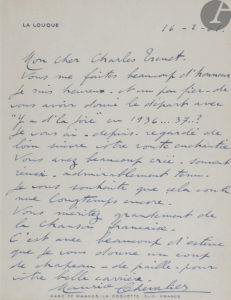 LA LOUQUE
16-2-
Mon cher Charles Trenet.
Vous me faites beaucoup d'honneur
Je suis heureux et un peu fier de
vous avoir donné le départ avec
"Y a d'la Joie" en 1936...37.?
Je vous ai depuis regardé de
loin suivre votre route enchantée
Vous avez beaucoup créé. souvent
admirablement tenu.
Je vous souhaite que cela continue
longtemps encore.
Vous méritez grandement de
la chanson française.
C'est avec beaucoup d'estime
que je vous donne un coup
de chapeau de paille pour
votre belle carrière
Maurice Chevalier
MARNES-LA-COQUETTE S.-O. FRANCE